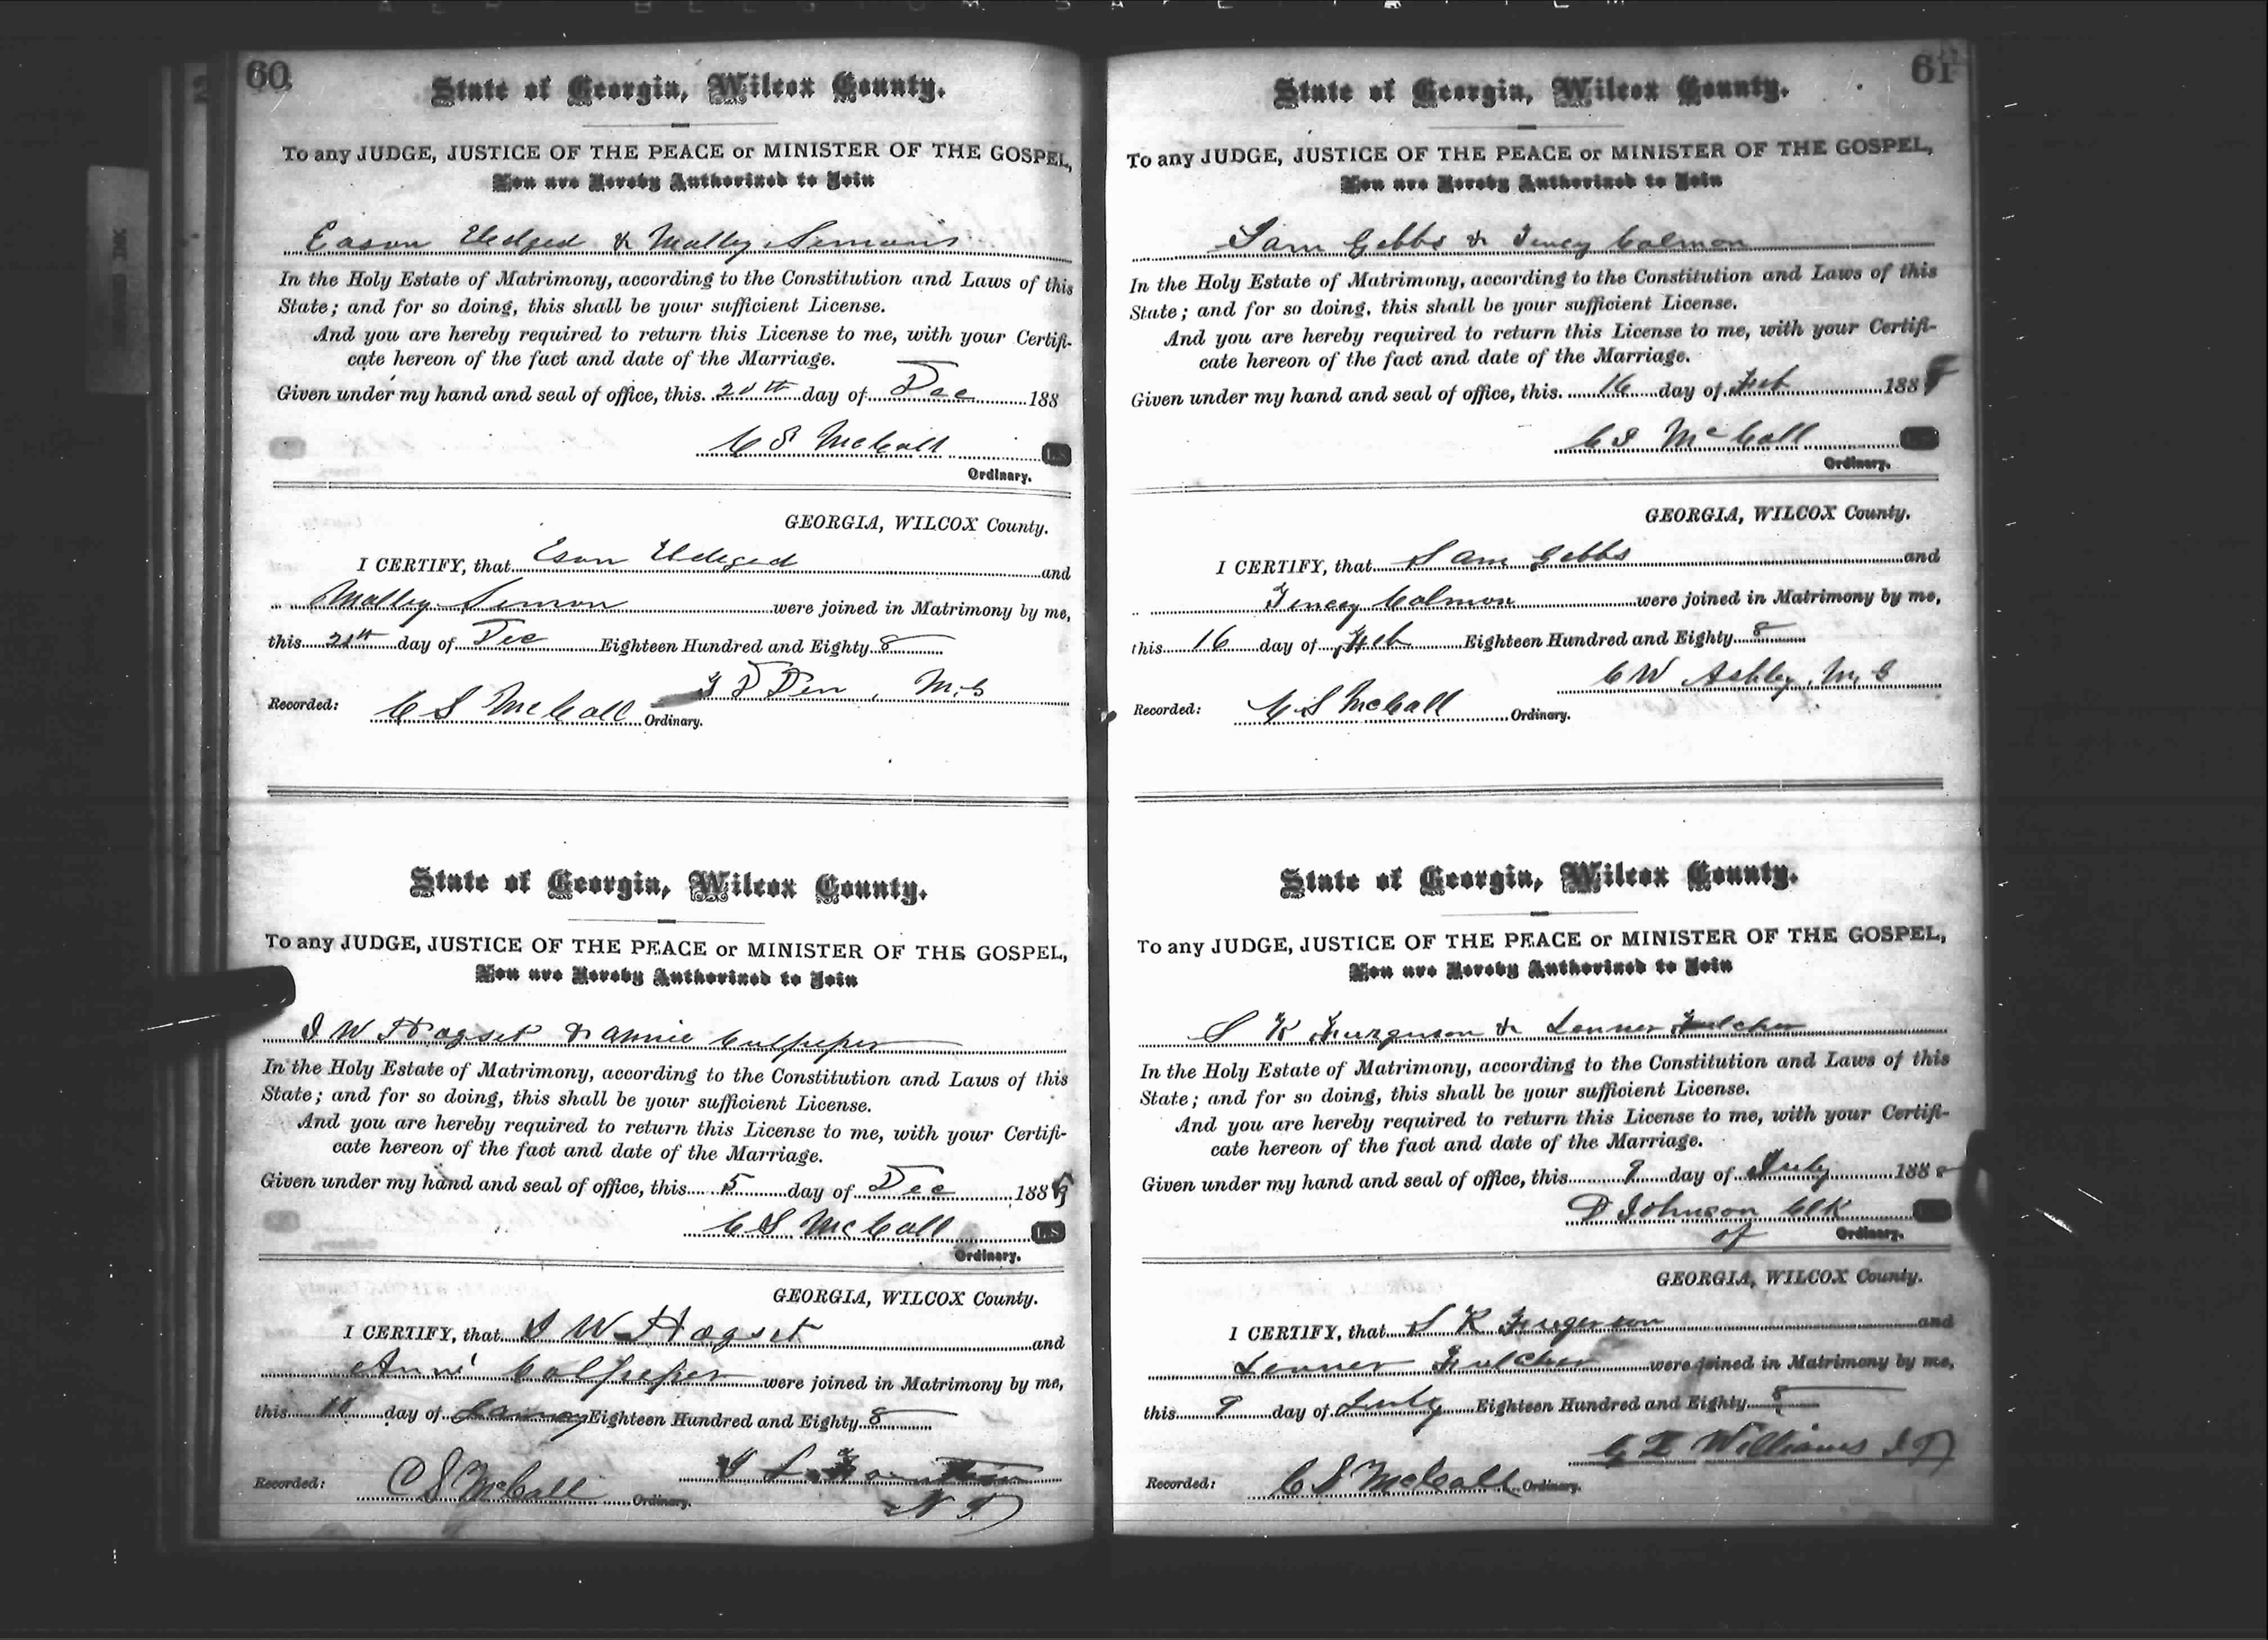 60
State of Georgia, Wilcox County.
To any JUDGE, JUSTICE OF THE PEACE or MINISTER OF THE GOSPEL,
You are Hereby Authorized to Join
Eason & Malley Simons
In the Holy Estate of Matrimony, according to the Constitution and Laws of this
State; and for so doing, this shall be your sufficient License.
And you are hereby required to return this License to me, with your Certifi-
cate hereon of the fact and date of the Marriage.
Given under my hand and seal of office, this 20th day of Dec 188
C S McCall L.S
Ordinary.
GEORGIA, WILCOX County.
I CERTIFY, that Eson and
Malley Simon were joined in Matrimony by me,
this day of Dec Eighteen Hundred and Eighty 8
M.G
Recorded: C S McCall Ordinary.
State of Georgia, Wilcox County.
To any JUDGE, JUSTICE OF THE PEACE or MINISTER OF THE GOSPEL,
You are Hereby Authorized to Join
J W Hogset & Annie Culpeper
In the Holy Estate of Matrimony, according to the Constitution and Laws of this
State; and for so doing, this shall be your sufficient License.
And you are hereby required to return this License to me, with your Certifi-
cate hereon of the fact and date of the Marriage.
Given under my hand and seal of office, this 5 day of Dec 188
C S McCall L.S
Ordinary.
GEORGIA, WILCOX County.
I CERTIFY, that J W Hogset and
Anni Colpeper were joined in Matrimony by me,
this 10 day of Eighteen Hundred and Eighty 8
Recorded: C S McCall Ordinary.
61
State of Georgia, Wilcox County.
To any JUDGE, JUSTICE OF THE PEACE or MINISTER OF THE GOSPEL,
You are Hereby Authorized to Join
Sam Gebbs & Colmon
In the Holy Estate of Matrimony, according to the Constitution and Laws of this
State; and for so doing, this shall be your sufficient License.
And you are hereby required to return this License to me, with your Certifi-
cate hereon of the fact and date of the Marriage.
Given under my hand and seal of office, this 16 day of Feb 1888
C S McCall
Ordinary.
GEORGIA, WILCOX County.
I CERTIFY, that Sam Gebbs and
Colmon were joined in Matrimony by me,
this 16 day of Feb Eighteen Hundred and Eighty 8
C W Ashley, M G
Recorded: C S McCall Ordinary.
State of Georgia, Wilcox County.
To any JUDGE, JUSTICE OF THE PEACE or MINISTER OF THE GOSPEL,
You are Hereby Authorized to Join
S K Furguson & Lenner Fulcher
In the Holy Estate of Matrimony, according to the Constitution and Laws of this
State; and for so doing, this shall be your sufficient License.
And you are hereby required to return this License to me, with your Certifi-
cate hereon of the fact and date of the Marriage.
Given under my hand and seal of office, this day of July 188
D Johnson Clk
of Ordinary.
GEORGIA, WILCOX County.
I CERTIFY, that S K Furgerson and
Lenner Fulcher were joined in Matrimony by me,
this 9 day of July Eighteen Hundred and Eighty 8
Williams J P
Recorded: C S McCall Ordinary.